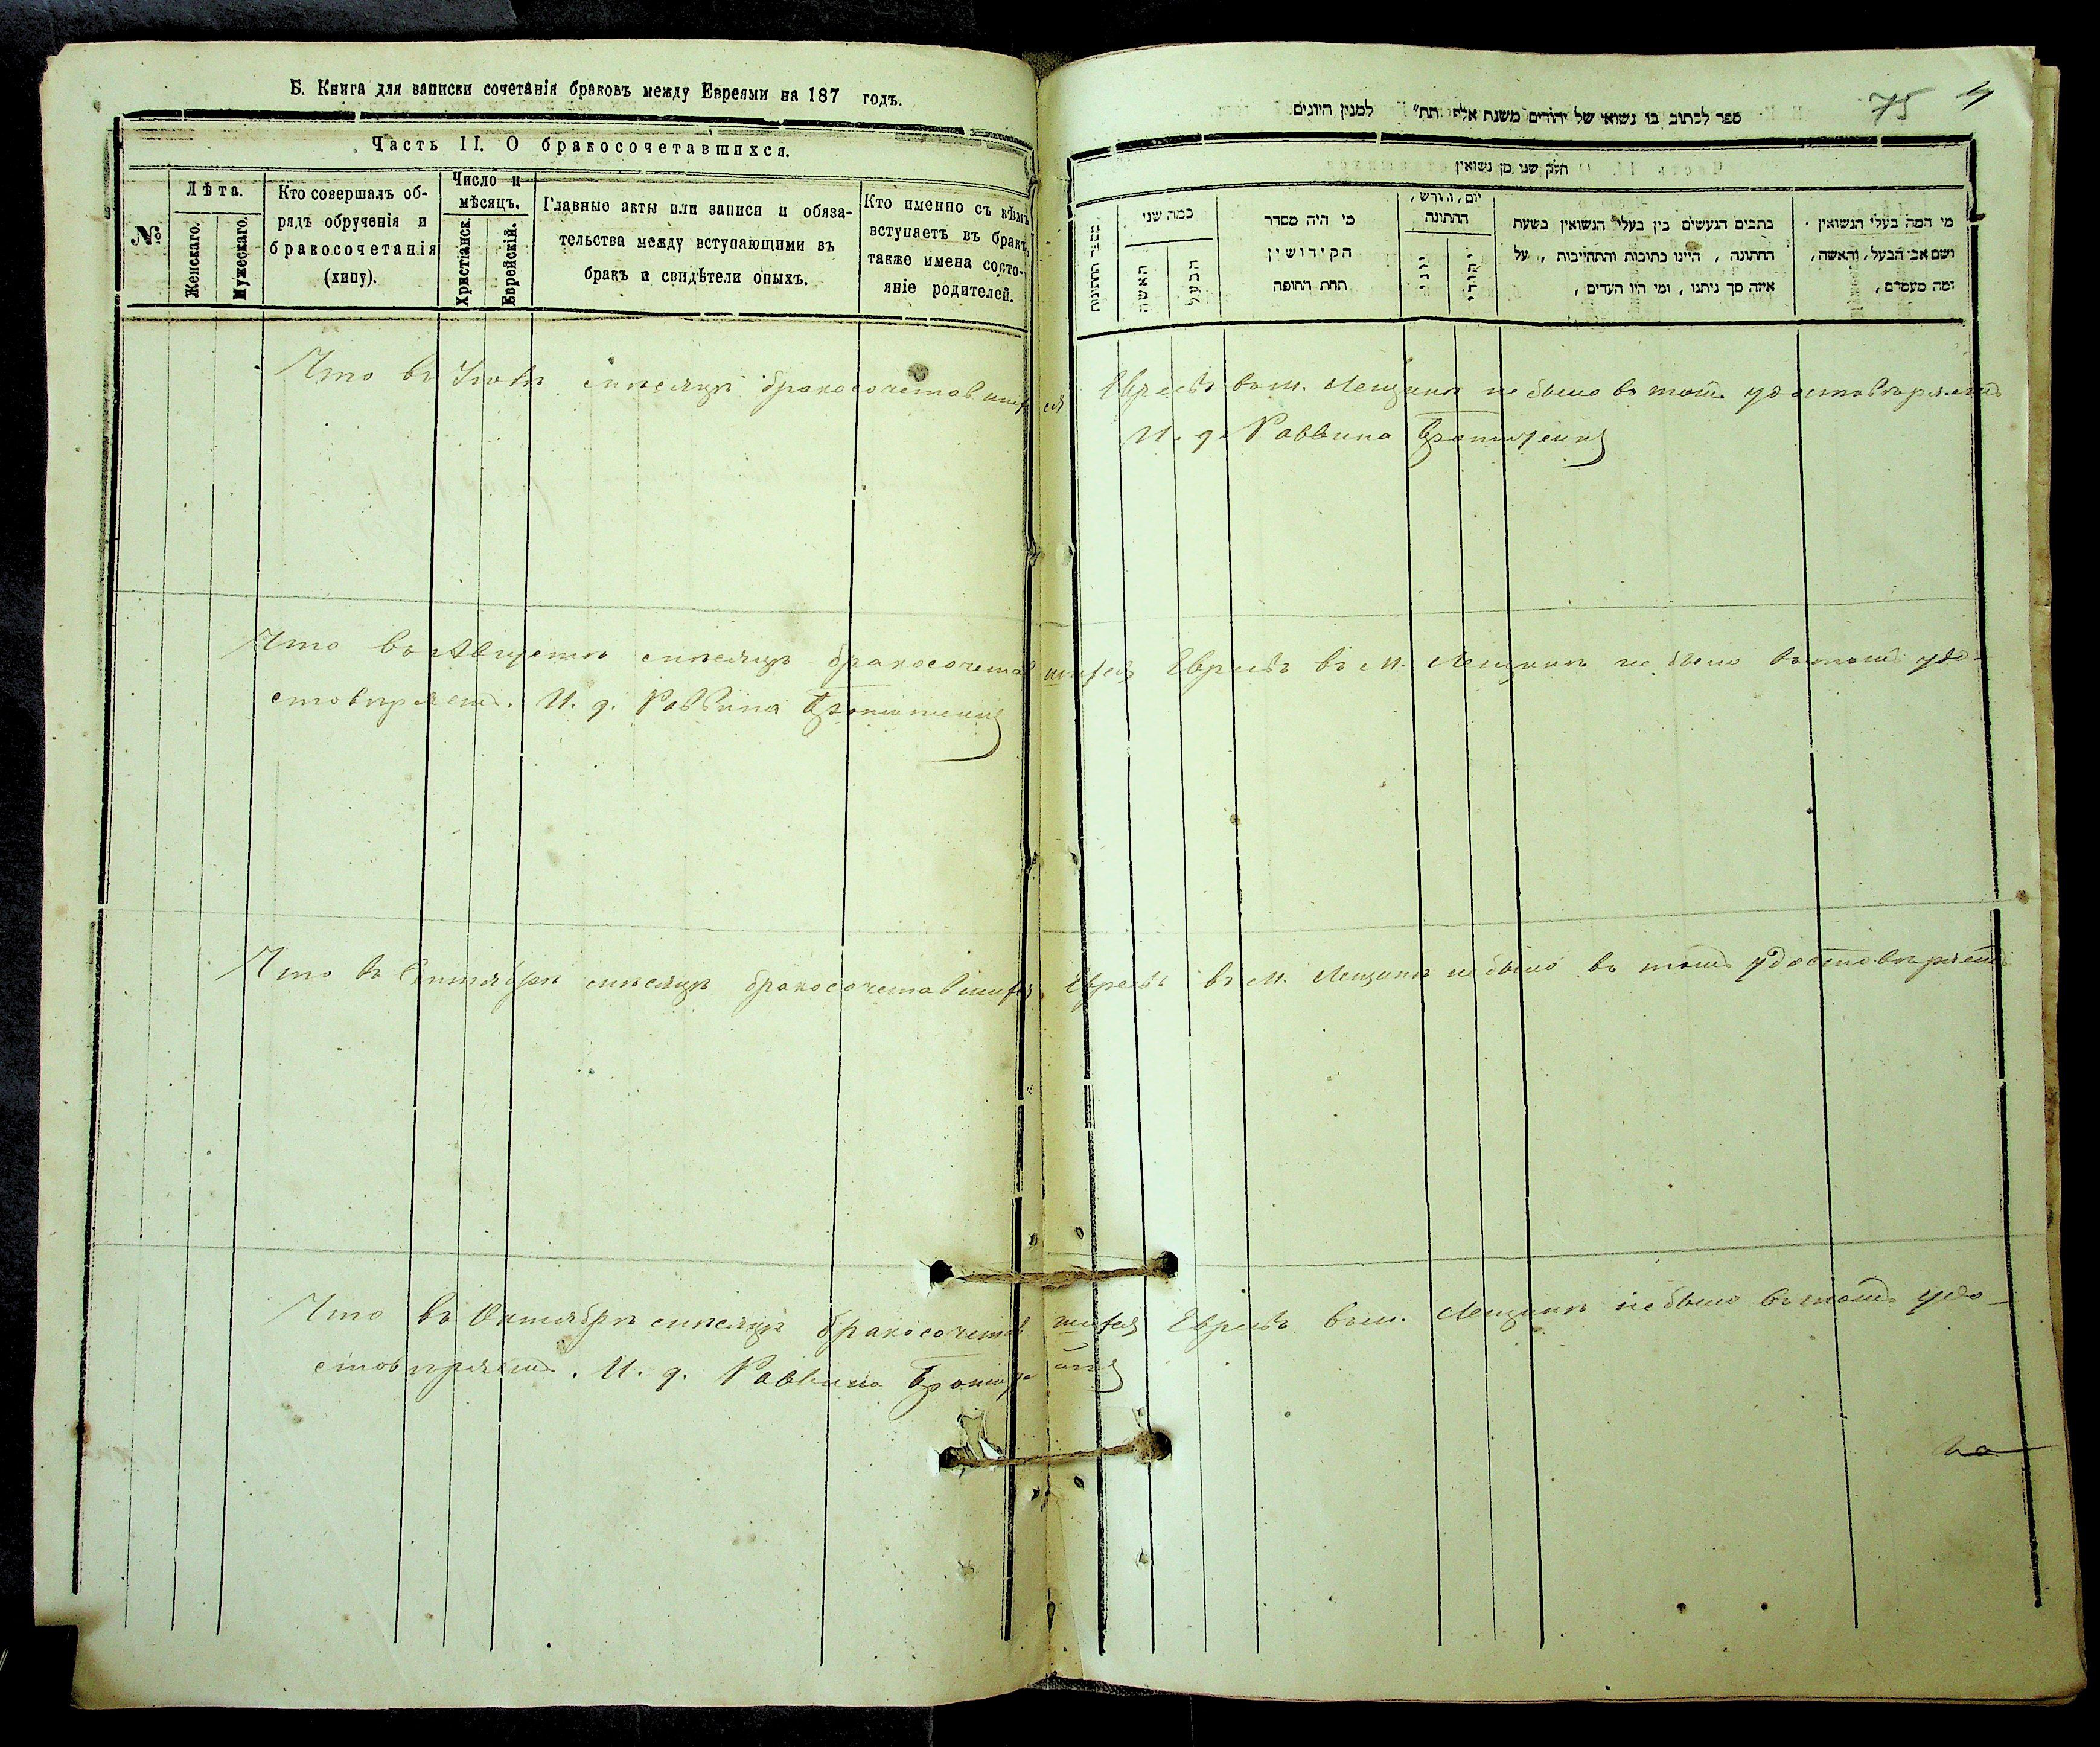 Б. Книга для записки сочетанія браковъ между Евреями на 187 годъ.
Часть II. О бракосочетавшихся.
№
Лѣта.
Женскаго.
Мужескаго.
Кто совершалъ об-
рядъ обрученія и
бракосочетанія
(хипу).
Число и
мѣсяцъ.
Христіанск.
Еврейскій.
Главные акты или записи и обяза-
тельства между вступающими въ
бракъ и свидѣтели оныхъ.
Кто именно съ кѣмъ
вступаетъ въ бракъ,
также имена состо-
яніе родителей.
75
ספר לכתוב בו נשואי של יהודים משנת אלף תת״ למנין היונים
חלק שני מן נשואין
מספר החתונות
כמה שני
האשה
הבעל
מי היה מסדר
הקידושין
תחת החופה
יום, וחדש,
החתונה
יוני
יהודי
כתבים הנעשים בין בעלי הנשואין בשעת
החתונה, היינו כתובות והתחייבות, על
איזה סך ניתנו, ומי היו העדים,
מי המה בעלי הנשואין
ושם אבי הבעל, והאשה,
ומה מעמדם,
Что въ Іюлѣ мѣсяцѣ бракосочетавшихся Евреевъ въ м. Лещинѣ не было въ томъ удостовѣряетъ
И. д. Раввина
Что въ Августѣ мѣсяцѣ бракосочетавшихся Евреевъ въ м. Лещинѣ не было въ томъ удо-
стовѣряетъ. И. д. Раввина
Что въ Сентябрѣ мѣсяцѣ бракосочетавшихся Евреевъ въ м. Лещинѣ не было въ томъ удостовѣряетъ
Что въ Октябрѣ мѣсяцѣ бракосочетавшихся Евреевъ въ м. Лещинѣ не было въ томъ удо-
стовѣряетъ. И. д. Раввина